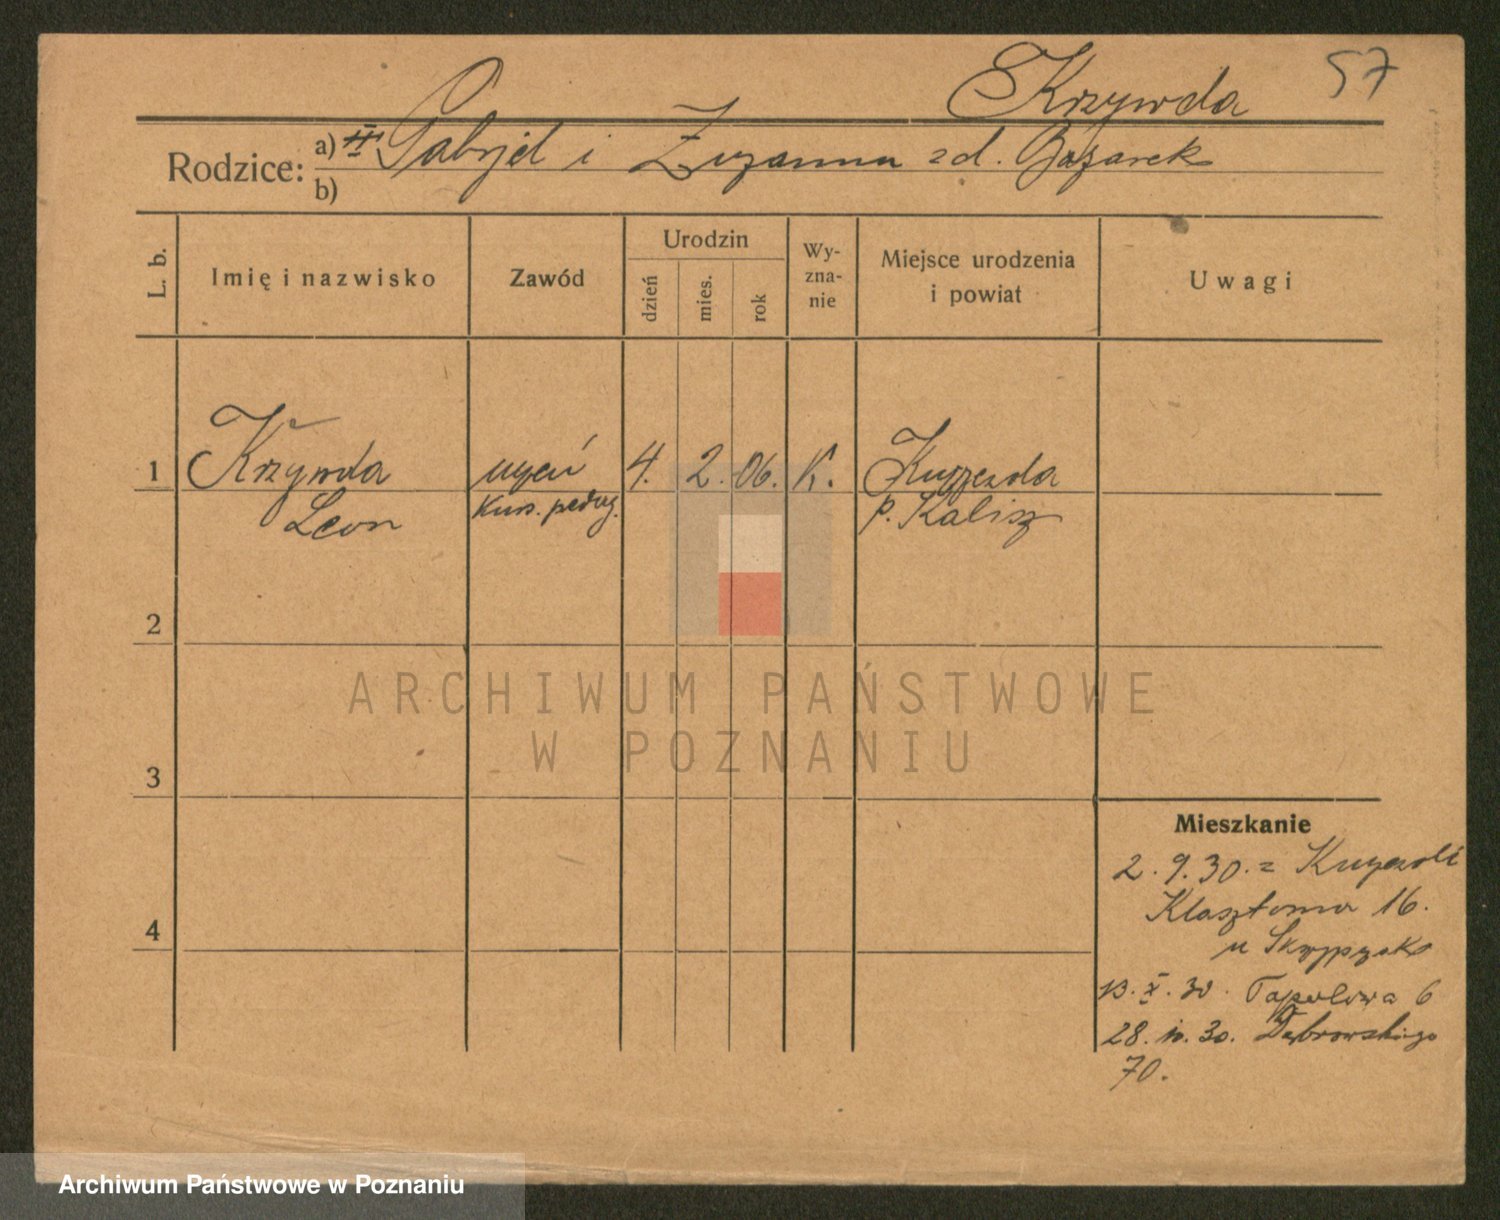 Krzywda 57
Rodzice: a) Gabryel i Zuzanna zd. Błazarek
b)
L. b. Imię i nazwisko Zawód Urodzin dzień mies. rok Wy-zna-nie Miejsce urodzenia i powiat Uwagi
1 Krzywda uczeń 4. 2. 06. K.
Leon Kurs. pedag. p. Kalisz
2
3
4
Mieszkanie
2. 9. 30. =
16.
u
13. X. 30. Topolowa 6
28. 10. 30. Dąbrowskiego
70.
ARCHIWUM PAŃSTWOWE
W POZNANIU
Archiwum Państwowe w Poznaniu